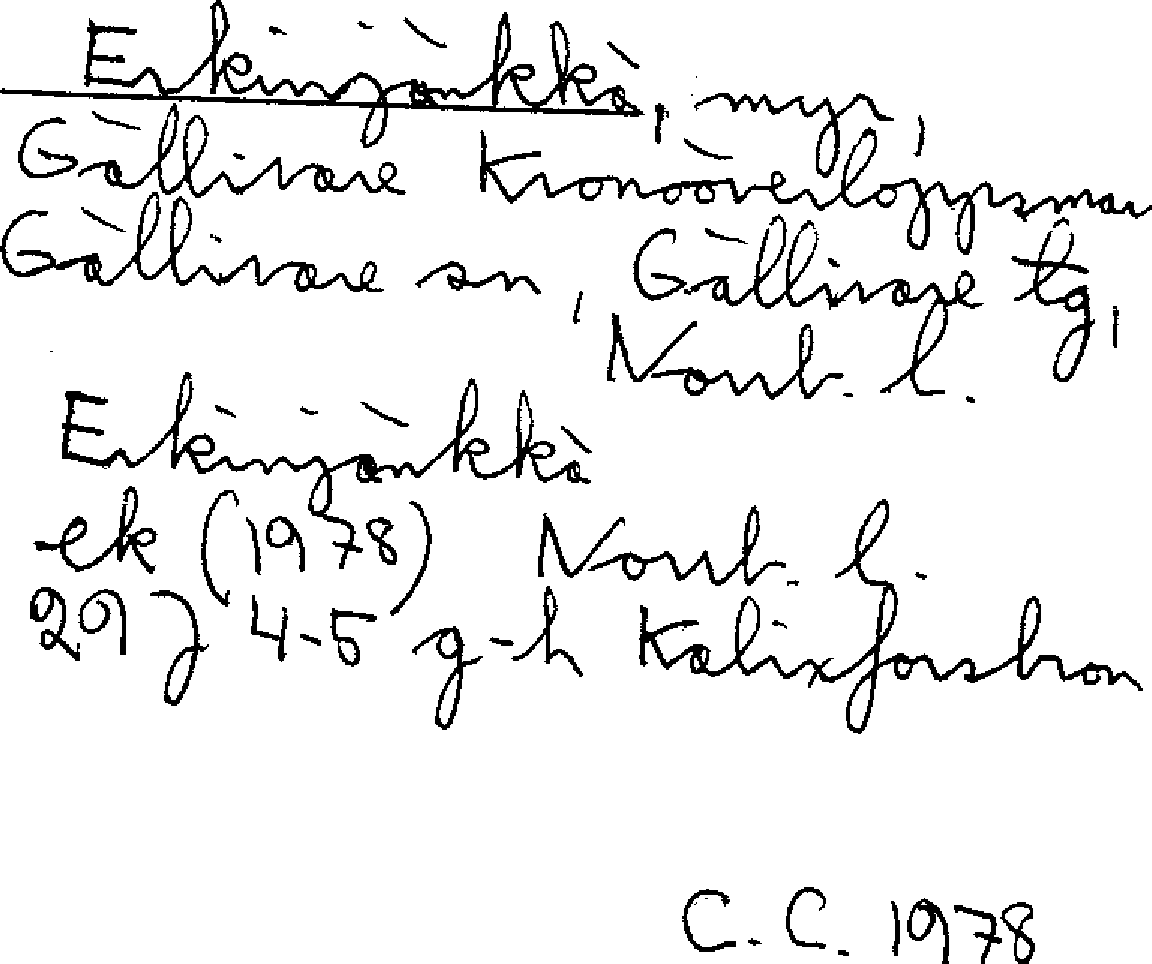 Erkinjänkkä, myr,
Gällivare Kronoöverloppsmar
Gällivare sn, Gällivare tg,
Norrb. l.
Erkinjänkkä
ek (1978) Norrb. l.
29 J 4-5 g-h Kalixforsbron
C.C. 1978